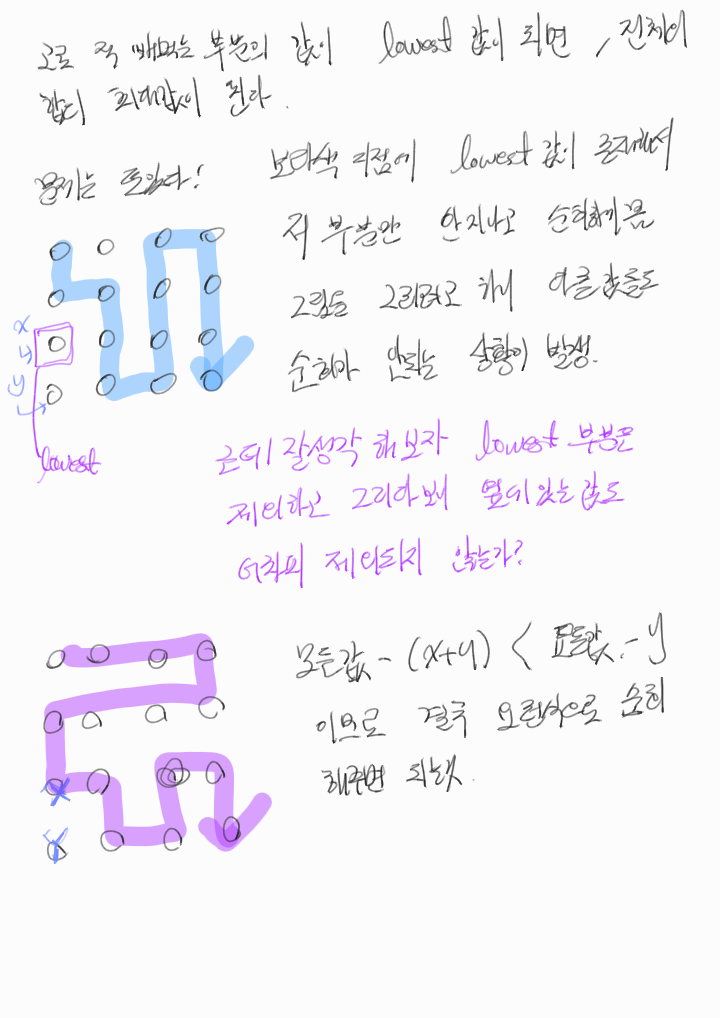 고로 적 빼먹는 부분의 값이 lowest 값이 되면, 전체의
합이 최대값이 된다.
문제는 도입다!
보라색 지점에 lowest 값이 존재해서
저 부분만 안지나고 순회하게끔
그림을 그리려고 하니 아래 값들도
순회가 안되는 상황이 발생.
x
y
lowest
근데 잘생각 해보자 lowest 부분은
제외하고 그리다보매 옆에있는 값도
어차피 제외되지 않는가?
모든값 - (x+y) < 모든값 - y
이므로 결국 오른쪽으로 순회
해주면 되는것.
x
y